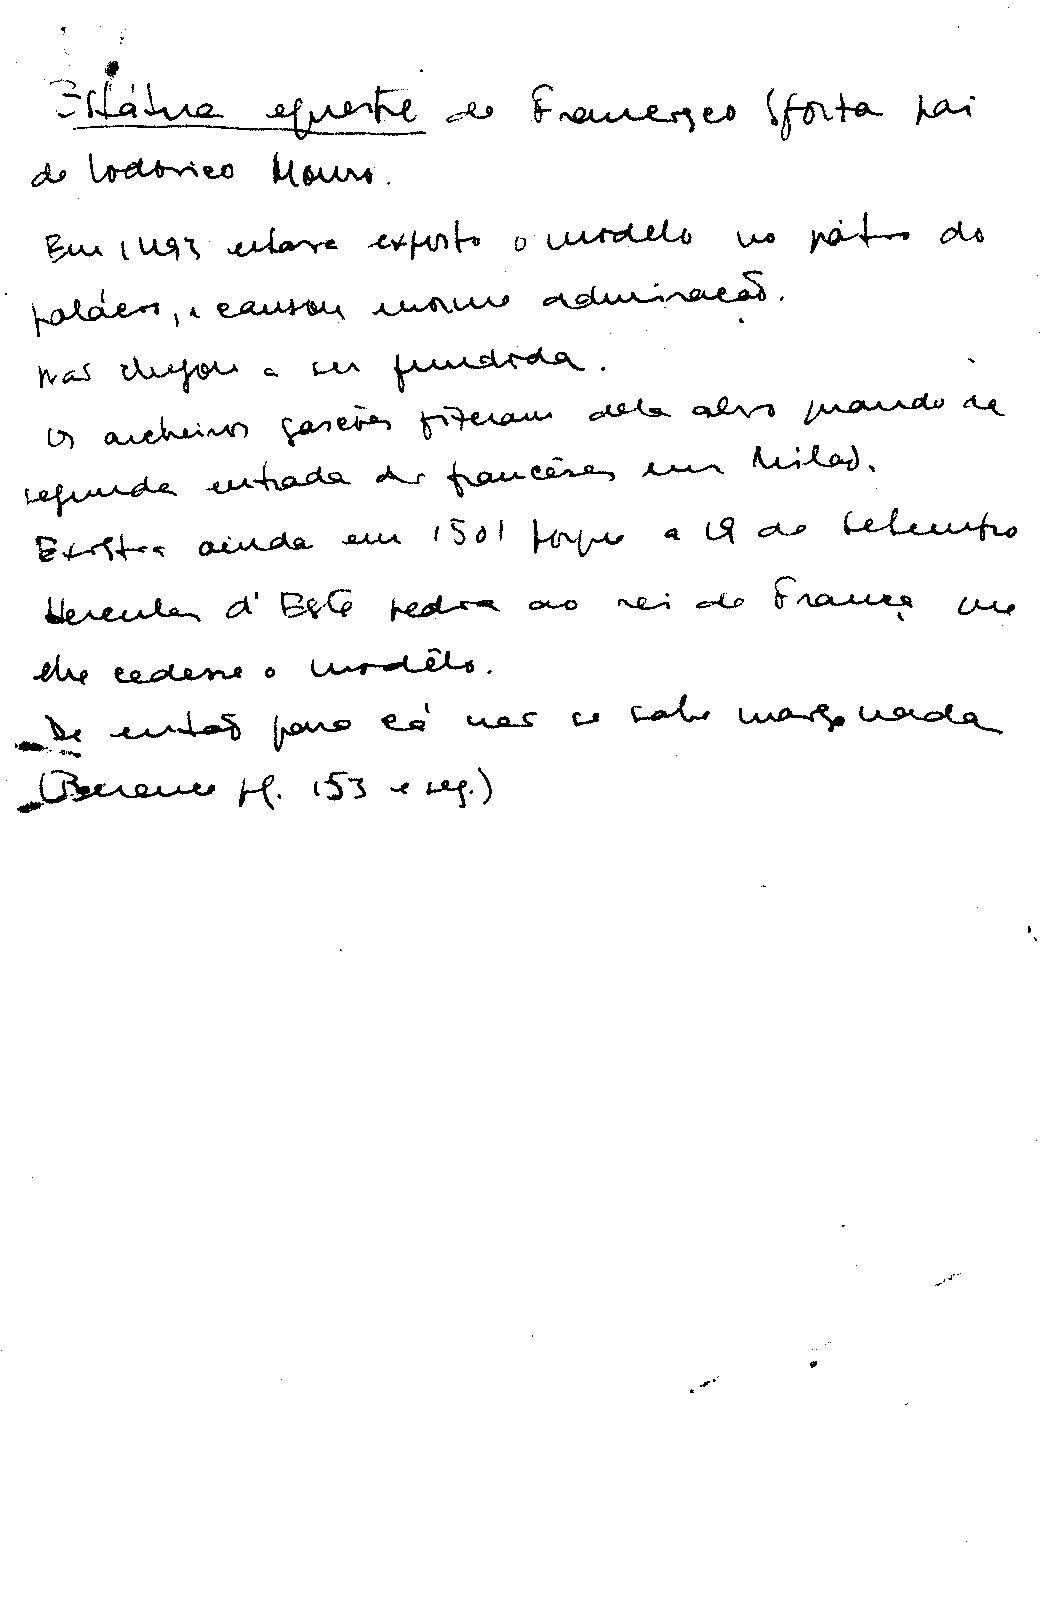 Estátua equestre de Francesco Sforza pai
de Lodovico Mouro.
Em 1493 estava exposto o modelo no pátio do
palácio, e causou enorme admiração.
Não chegou a ser fundida.
Os archeiros gascões fizeram dela alvo quando da
segunda entrada dos franceses em Milão.
Existia ainda em 1501 porque a 19 de setembro
Hercules d'Este pedia ao rei de França que
lhe cedesse o modêlo.
De então para cá não se sabe mais nada
pg. 153 e seg.)